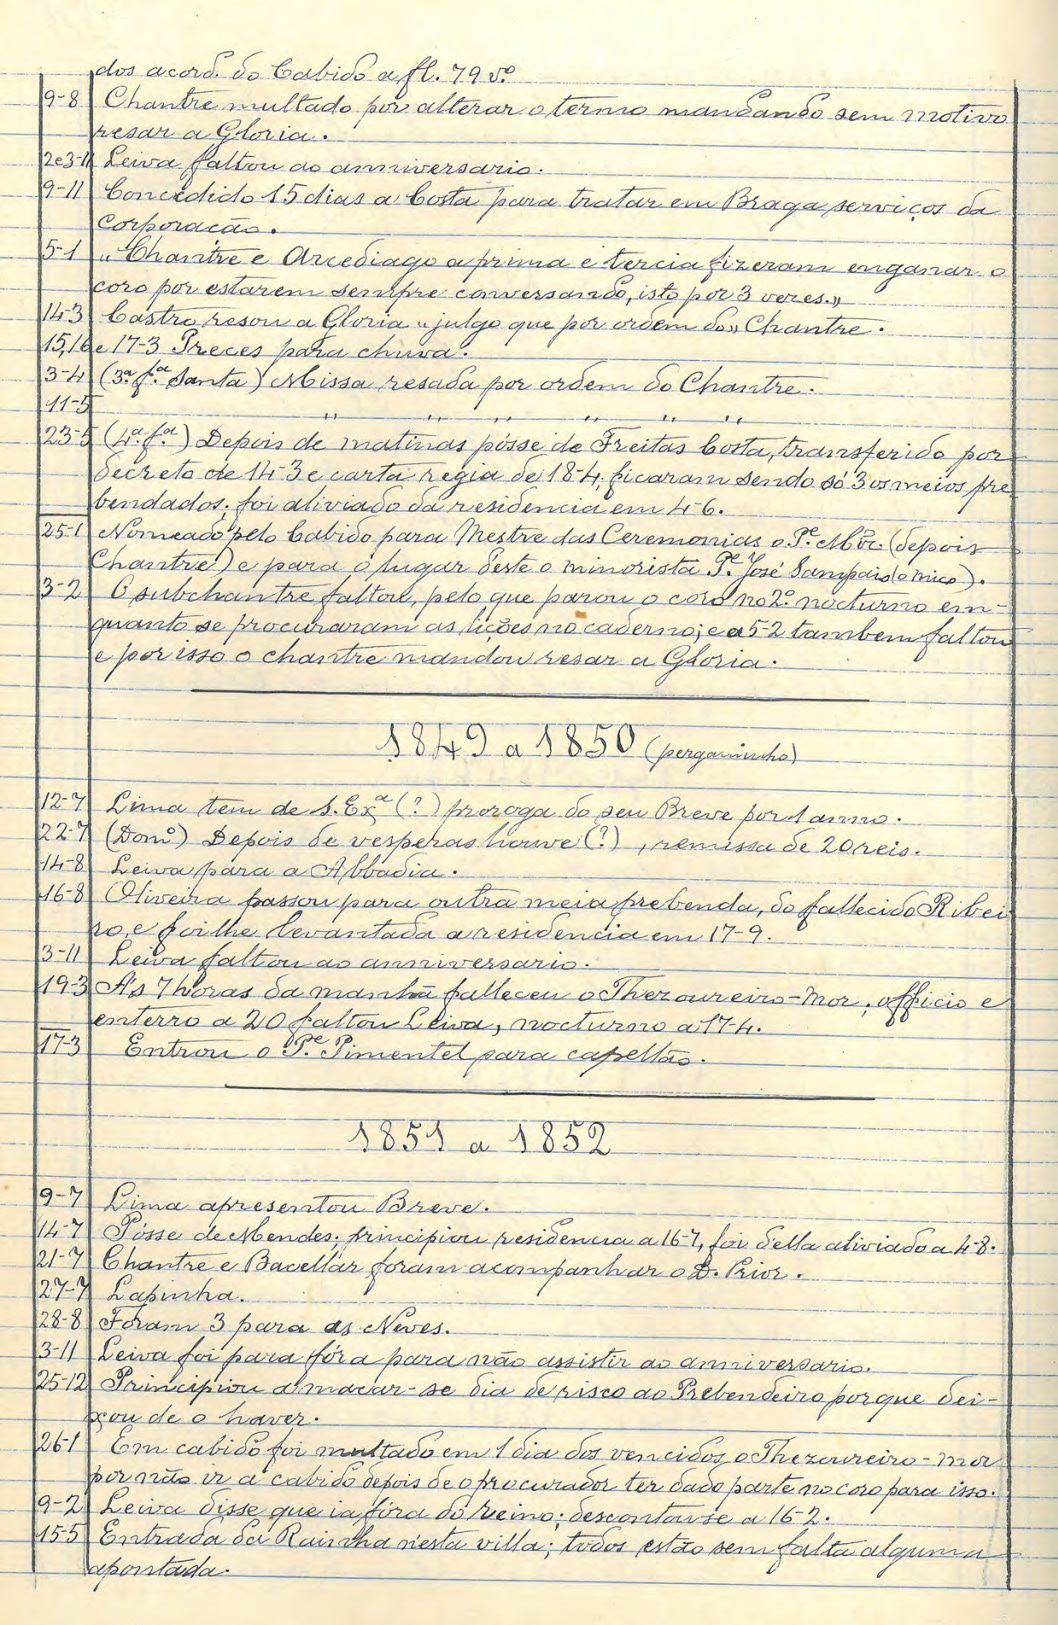 dos acord. do Cabido a fl. 79 v.º
9-8 Chantre multado por alterar o termo mandando sem motivo
resar a Gloria.
2e3-11 Leiva faltou ao anniversario.
9-11 Concedido 15 dias a Costa para tratar em Braga serviços da
corporação.
5-1 "Chantre e Arcediago a prima e tercia fizeram enganar o
coro por estarem sempre conversando, isto por 3 vezes."
14-3 Castro resou a Gloria "julgo que por ordem do" Chantre.
15,16 e 17-3 Preces para chuva.
3-4 (3.ª f.ª Santa) Missa resada por ordem do Chantre.
11-5 " " " " " "
23-5 (4.ª f.ª) Depois de matinas pósse de Freitas Costa, transferido por
decreto de 14-3 e carta regia de 18-4, ficaram sendo só 3 os meios pre
bendados; foi aliviado da residencia em 4-6.
25-1 Nomeado pelo Cabido para Mestre das Ceremonias o P.e M.oc. (depois
Chantre) e para o lugar deste o minorista P.e José Sampaio (o mico).
3-2 O subchantre faltou, pelo que parou o coro no 2.º nocturno em-
quanto se procuraram as lições no caderno; e a 5-2 tambem faltou
e por isso o chantre mandou resar a Gloria.
1849 a 1850 (pergaminho)
12-7 Lima tem de S. Ex.ª (?) proroga do seu Breve por 1 anno.
22-7 (Dom.º) Depois de vesperas houve (?), remissa de 20 reis.
14-8 Leiva para a Abbadia.
16-8 Oliveira passou para outra meia prebenda, do fallecido Ribei
ro, e foi lhe levantada a residencia em 17-9.
3-11 Leiva faltou ao anniversario.
19-3 Ás 7 horas da manhã falleceu o Thezoureiro-Mor, officio e
enterro a 20 faltou Leiva, nocturno a 17-4.
17-3 Entrou o P.e Pimentel para capellão.
1851 a 1852
9-7 Lima apresentou Breve.
14-7 Pósse de Mendes; principiou residencia a 16-7, foi della aliviado a 4-8.
21-7 Chantre e Bacellar foram acompanhar o D. Prior.
27-7 Lapinha.
28-8 Foram 3 para as Neves.
3-11 Leiva foi para fóra para não assistir ao anniversario.
25-12 Principiou a macar-se dia de risco ao Prebendeiro porque dei-
xou de o haver.
26-1 Em cabido foi multado em 1 dia dos vencidos o Thezoureiro-mor
por não ir a cabido depois de o procurador ter dado parte no coro para isso.
9-2 Leiva disse que ia fóra do reino; descontou-se a 16-2.
15-5 Entrada da Rainha n'esta villa; todos estão sem falta alguma
apontada.